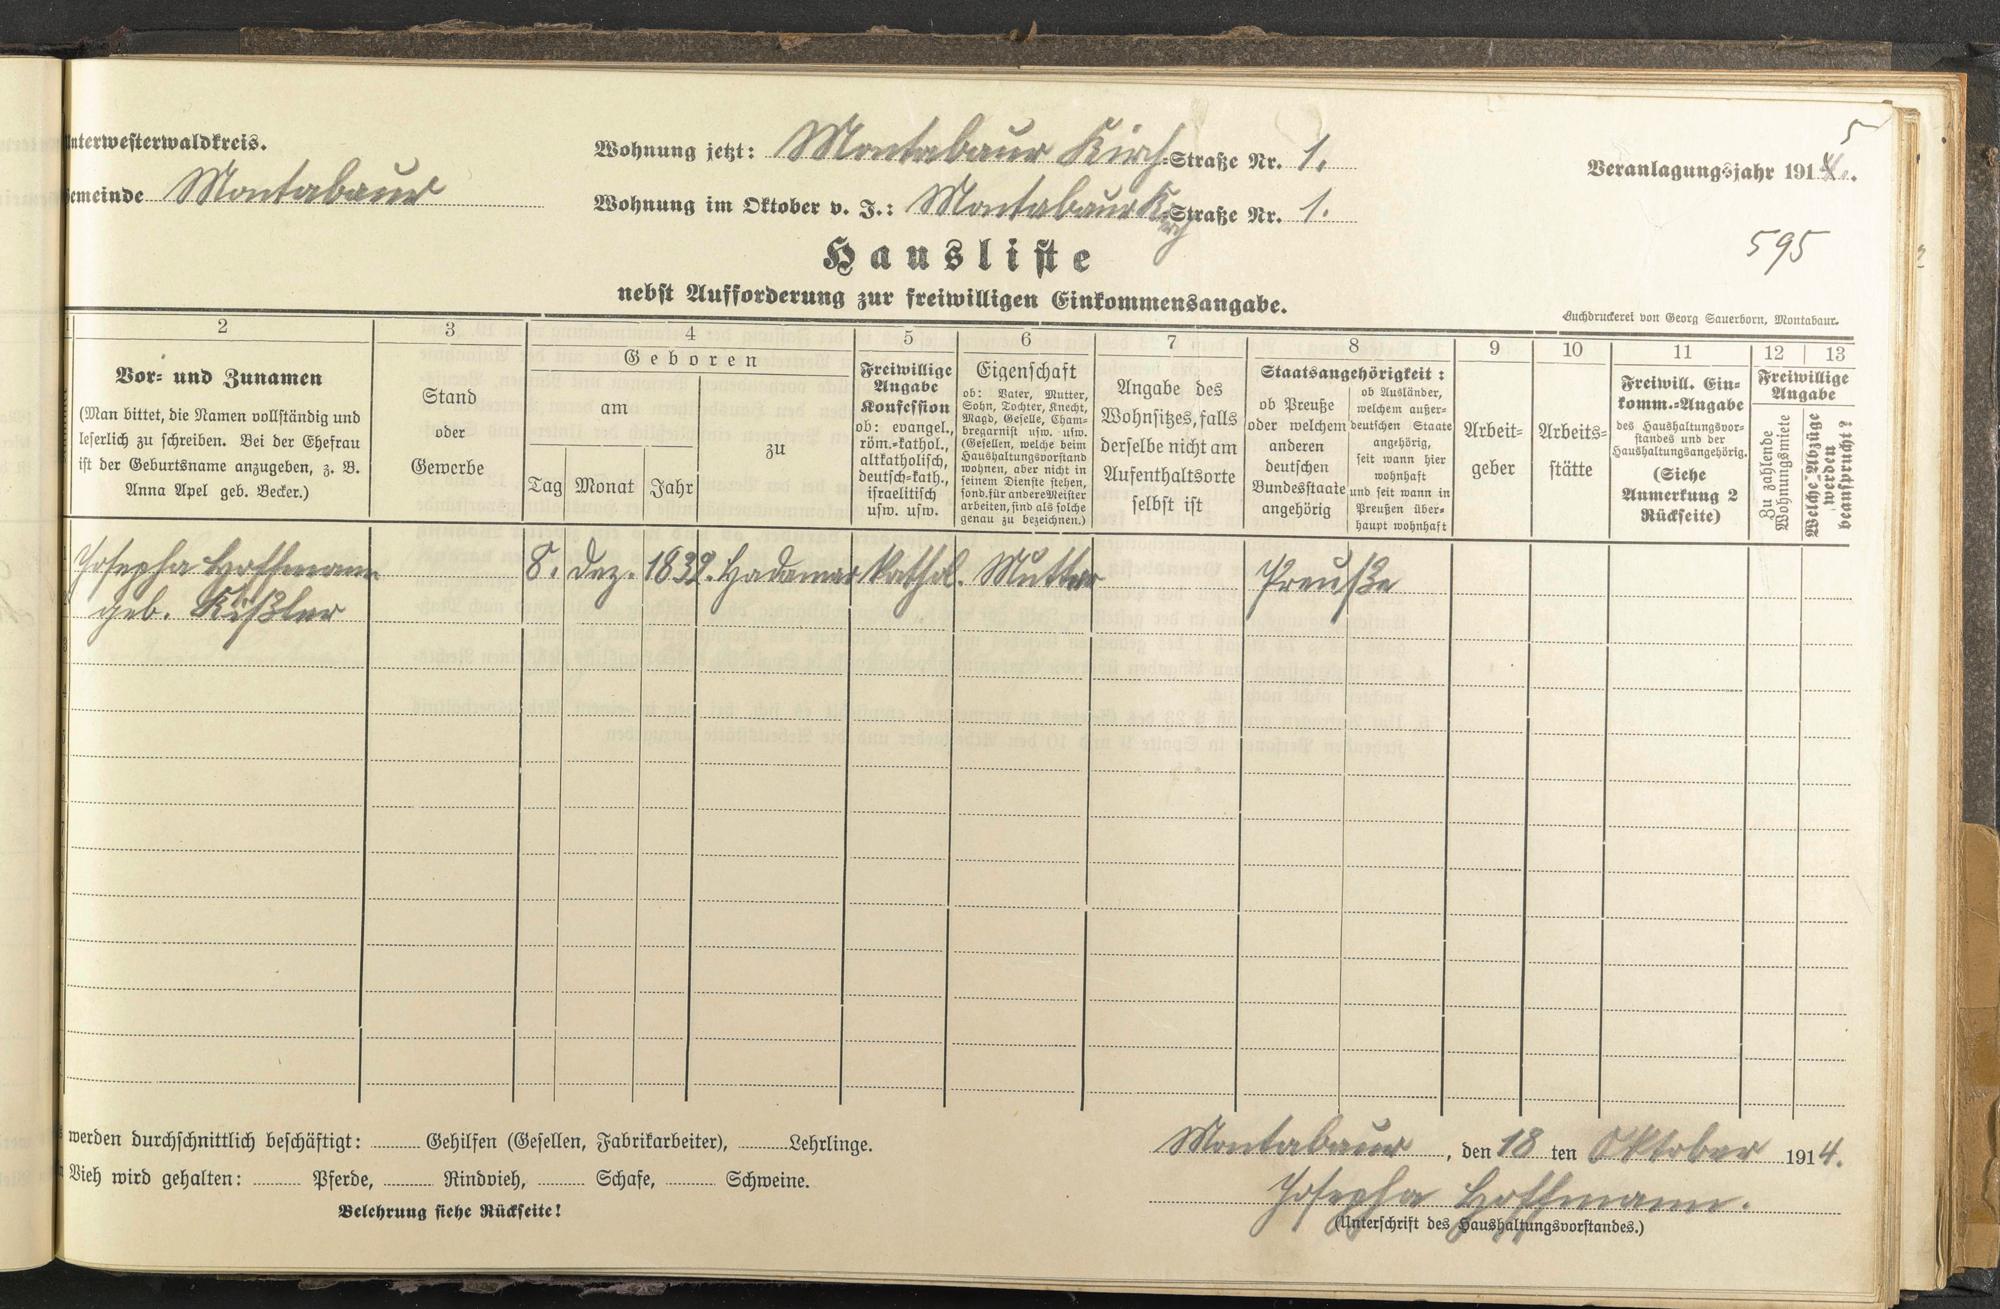 Unterwesterwaldkreis.
Gemeinde Montabaur
Wohnung jetzt: Montabaur Kirch-Straße Nr. 1.
Wohnung im Oktober v. J.: Montabaur Kirch-Straße Nr. 1.
Veranlagungsjahr 1914.
5
595
Hausliste
nebst Aufforderung zur freiwilligen Einkommensangabe.
Buchdruckerei von Georg Sauerborn, Montabaur.
1 2 3 4 5 6 7 8 9 10 11 12 13
Vor- und Zunamen
(Man bittet, die Namen vollständig und
leserlich zu schreiben. Bei der Ehefrau
ist der Geburtsname anzugeben, z. B.
Anna Apel geb. Becker.)
Stand
oder
Gewerbe
Geboren
am
zu
Tag Monat Jahr
Freiwillige
Angabe
Konfession
ob: evangel.,
röm.-kathol.,
altkatholisch,
deutsch-kath.,
israelitisch
usw. usw.
Eigenschaft
ob: Vater, Mutter,
Sohn, Tochter, Knecht,
Magd, Geselle, Cham-
bregarnist usw. usw.
(Gesellen, welche beim
Haushaltungsvorstand
wohnen, aber nicht in
seinem Dienste stehen,
sond. für andere Meister
arbeiten, sind als solche
genau zu bezeichnen.)
Angabe des
Wohnsitzes, falls
derselbe nicht am
Aufenthaltsorte
selbst ist
Staatsangehörigkeit:
ob Preuße
oder welchem
anderen
deutschen
Bundesstaate
angehörig
ob Ausländer,
welchem außer-
deutschen Staate
angehörig,
seit wann hier
wohnhaft
und seit wann in
Preußen über-
haupt wohnhaft
Arbeit-
geber
Arbeits-
stätte
Freiwill. Ein-
komm.-Angabe
des Haushaltungsvor-
standes und der
Haushaltungsangehörig.
(Siehe
Anmerkung 2
Rückseite)
Freiwillige
Angabe
Zu zahlende
Wohnungsmiete
Welche Abzüge
werden
beansprucht?
Josepha Hoffmann 8. Dez. 1832. Hadamar kathol. Mutter Preuße
geb. Kißler
werden durchschnittlich beschäftigt: Gehilfen (Gesellen, Fabrikarbeiter), Lehrlinge.
Vieh wird gehalten: Pferde, Rindvieh, Schafe, Schweine.
Belehrung siehe Rückseite!
Montabaur, den 18 ten Oktober 1914.
Josepha Hoffmann.
(Unterschrift des Haushaltungsvorstandes.)